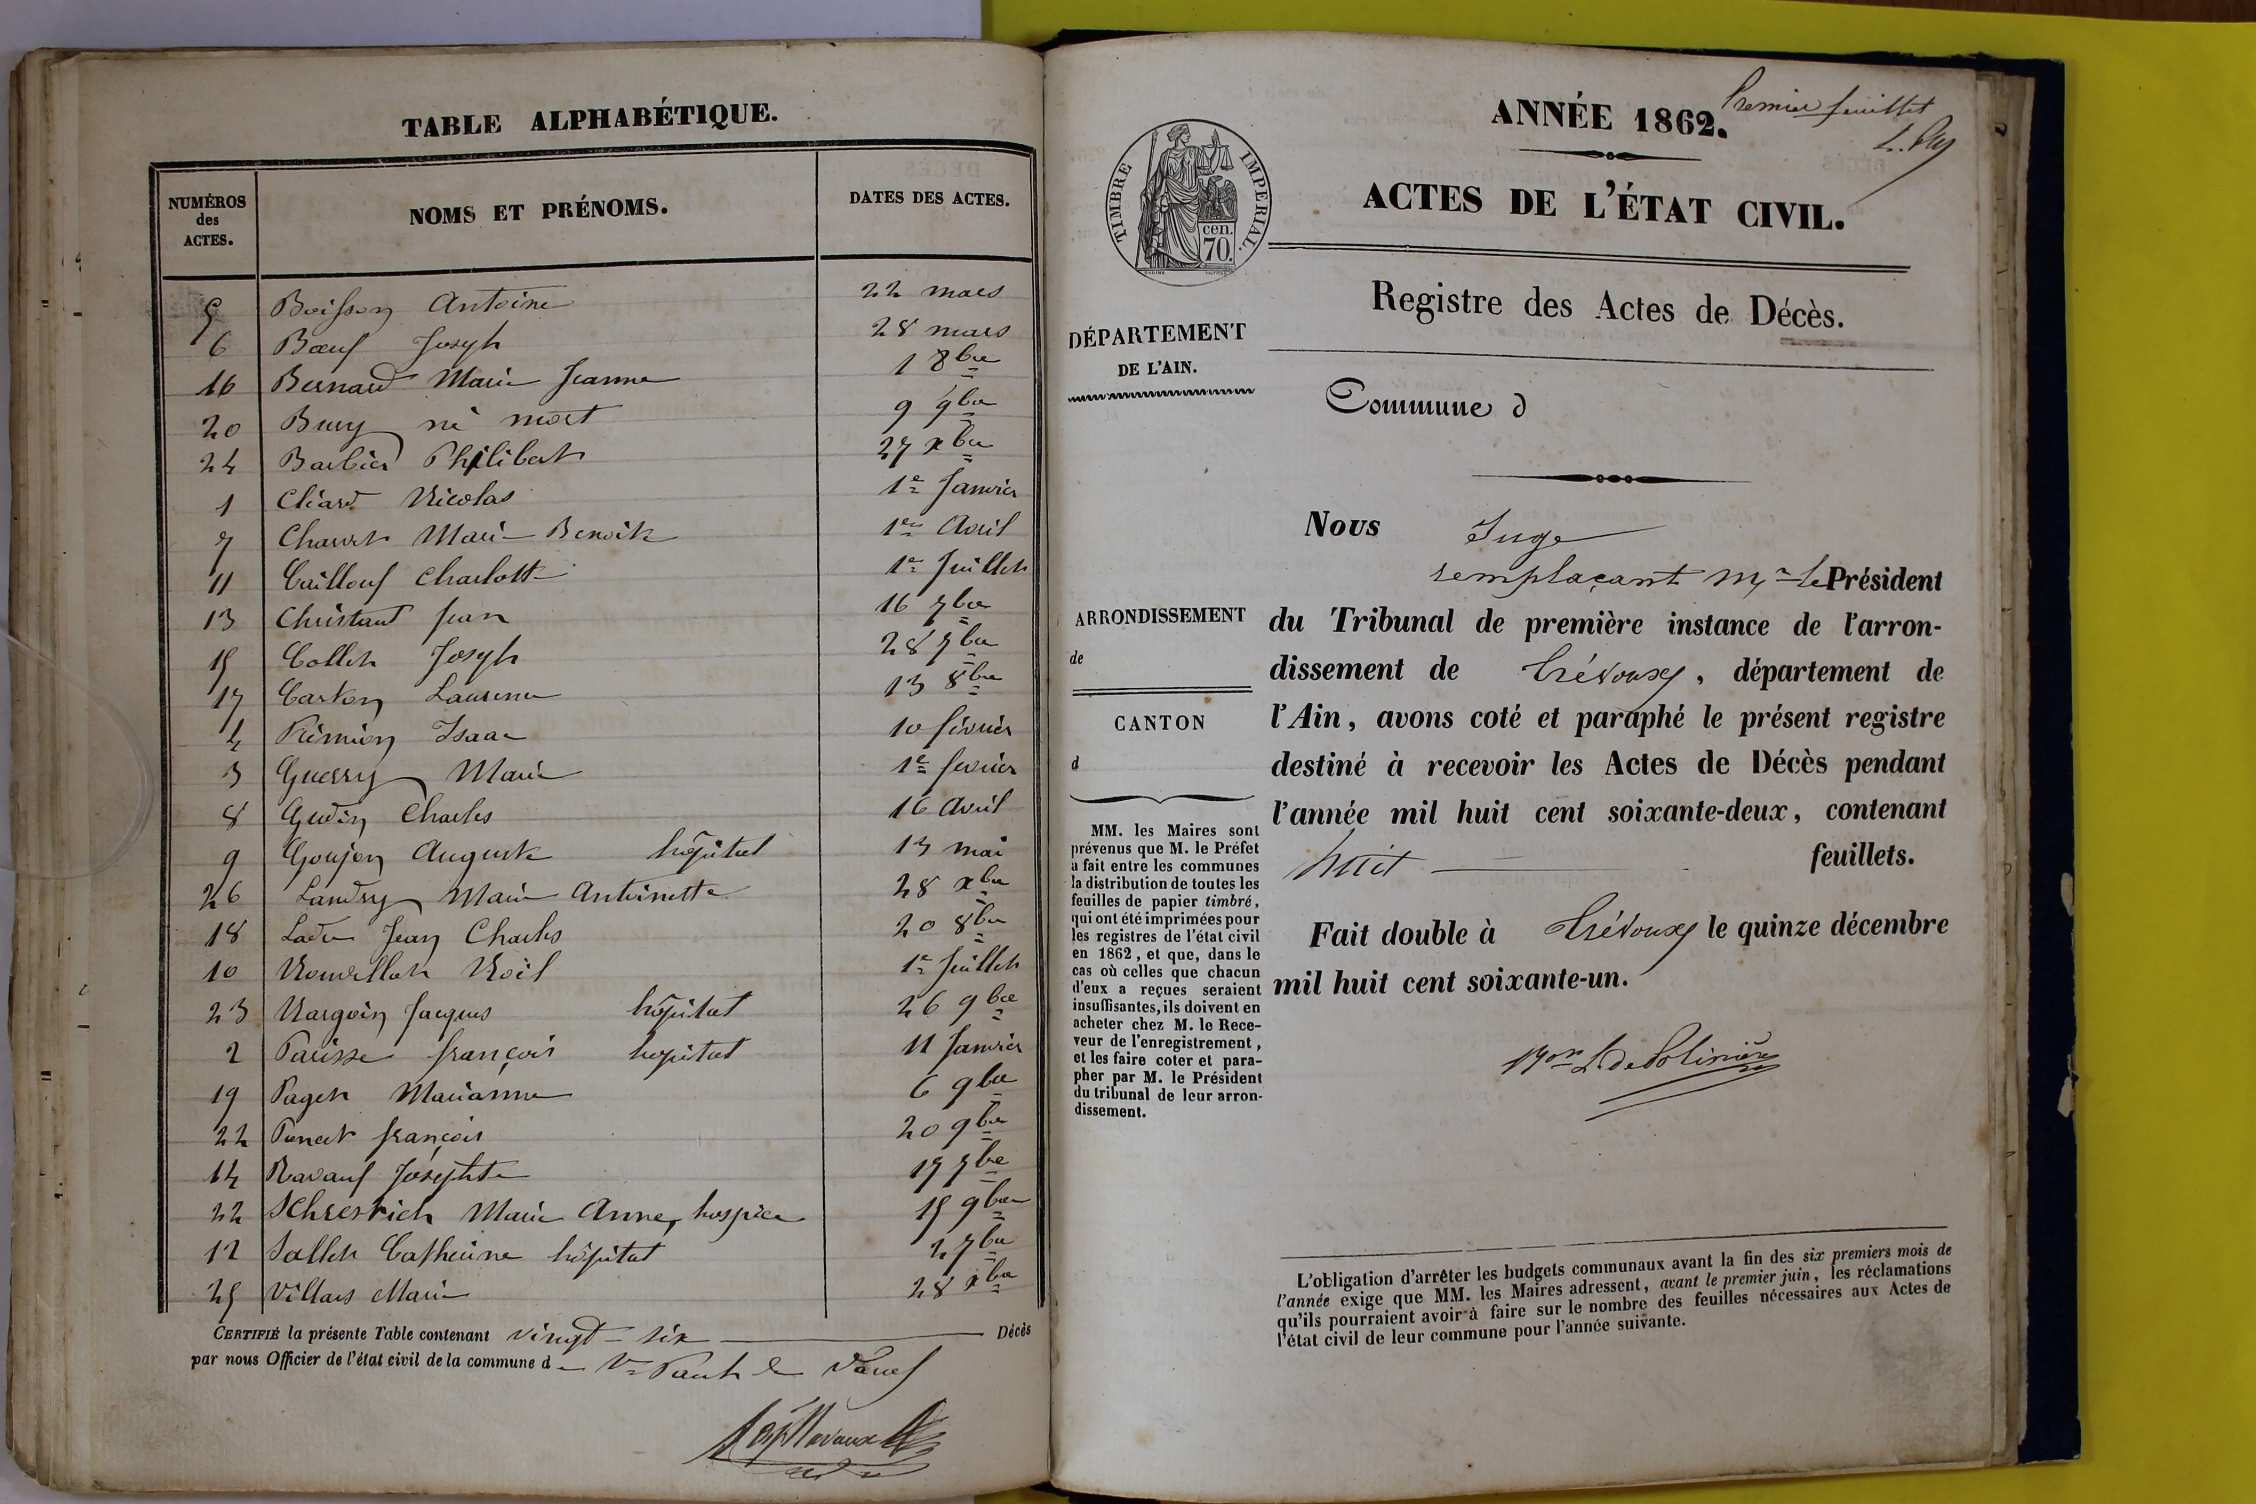 TABLE ALPHABÉTIQUE.
NUMÉROS des ACTES. NOMS ET PRÉNOMS. DATES DES ACTES.
5 Boisson Antoine 22 mars
6 Bœuf Joseph 28 mars
16 Bernard Marie Jeanne 1 8bre
20 Buey né mort 9 9bre
24 Barbier Philibert 27 xbre
1 Cléard Nicolas 1er Janvier
7 Marie Benoite 1er Avril
11 Charlotte 1er Juillet
13 Christant Jean 16 7bre
15 Collet Joseph 28 7bre
17 Carton Laurence 13 8bre
4 Isaac 10 février
3 Guerry Marie 1er février
8 Gudin Charles 16 Avril
9 Goujon Auguste hôpital 13 mai
26 Landry Marie Antoinette 28 xbre
18 Jean Charles 20 8bre
10 Nouvellet Noël 1er Juillet
23 Nargoin Jacques hôpital 26 9bre
2 Parisse françois hopital 11 Janvier
19 Paget Marianne 6 9bre
22 Poncet françois 20 9bre
14 Ravauf Josephte 17 7bre
22 Marie Anne, hospice 15 9bre
12 Sallet Catherine hôpital 2 7bre
25 Villars Marie 28 xbre
CERTIFIÉ la présente Table contenant vingt-six Décès
par nous Officier de l'état civil de la commune d
Premier feuillet
ANNÉE 1862.
ACTES DE L'ÉTAT CIVIL.
TIMBRE IMPERIAL.
cen.
70.
Registre des Actes de Décès.
DÉPARTEMENT
DE L'AIN.
Commune d
Nous Juge
remplaçant Mr le Président
ARRONDISSEMENT
de
CANTON
d
du Tribunal de première instance de l'arron-
dissement de Trévoux, département de
l'Ain, avons coté et paraphé le présent registre
destiné à recevoir les Actes de Décès pendant
l'année mil huit cent soixante-deux, contenant
huit feuillets.
Fait double à Trévoux le quinze décembre
mil huit cent soixante-un.
MM. les Maires sont
prévenus que M. le Préfet
a fait entre les communes
la distribution de toutes les
feuilles de papier timbré,
qui ont été imprimées pour
les registres de l'état civil
en 1862, et que, dans le
cas où celles que chacun
d'eux a reçues seraient
insuffisantes, ils doivent en
acheter chez M. le Rece-
veur de l'enregistrement,
et les faire coter et para-
pher par M. le Président
du tribunal de leur arron-
dissement.
L'obligation d'arrêter les budgets communaux avant la fin des six premiers mois de
l'année exige que MM. les Maires adressent, avant le premier juin, les réclamations
qu'ils pourraient avoir à faire sur le nombre des feuilles nécessaires aux Actes de
l'état civil de leur commune pour l'année suivante.